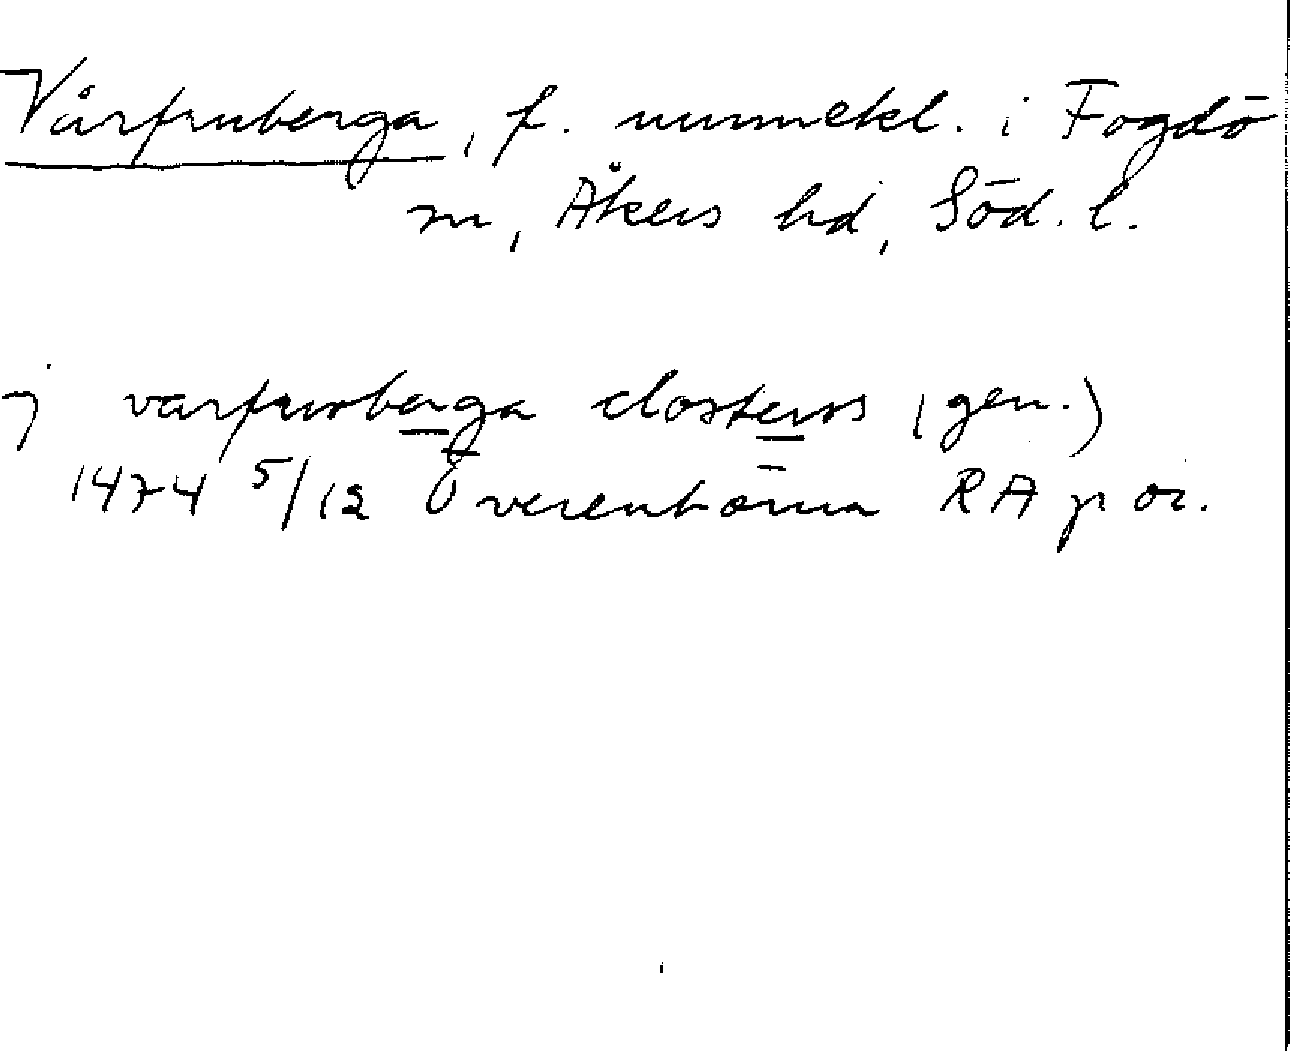 Vårfruberga, f. nunnekl. i Fogdö
sn, Åkers hd, Söd. l.
j varfrwberga closters (gen.)
1474 5/12 Överenhörna RA p or.